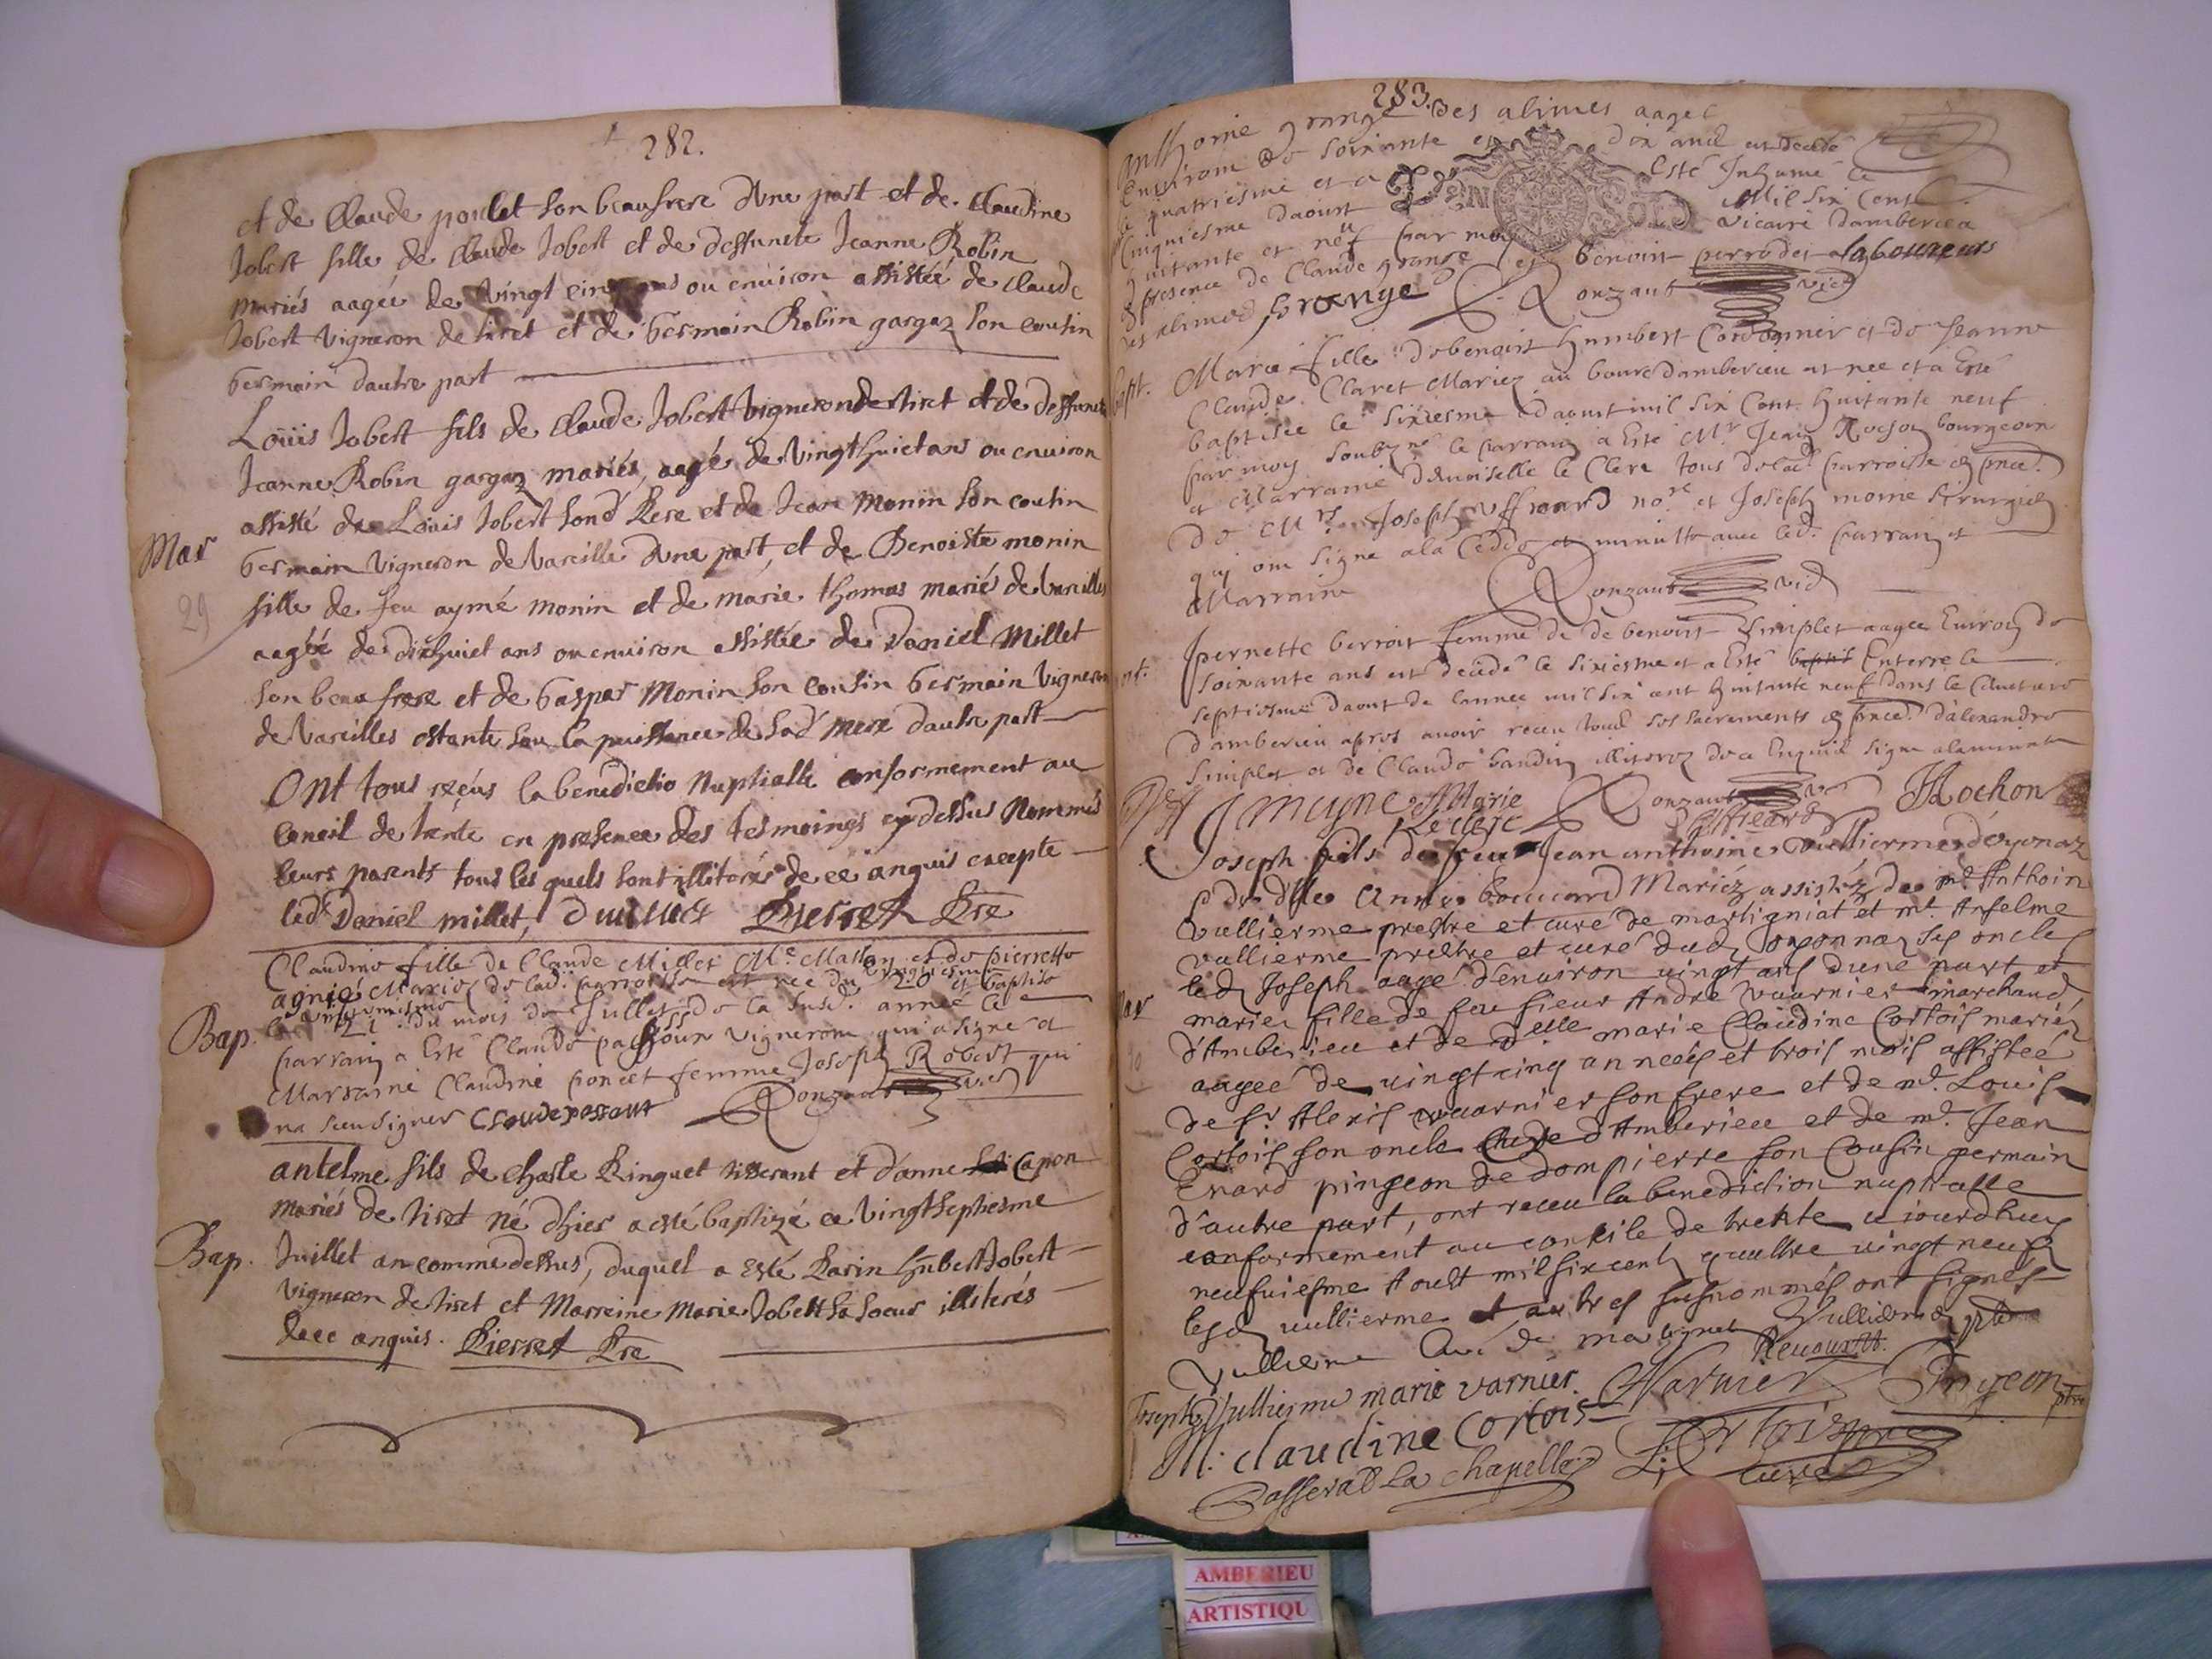 282.
et de Claude poulet son beaufrere d'vne part et de Claudine
Jobert fille de Claude Jobert et de deffuncte Jeanne Robin
mariés aagée de vingt cinq ans ou enuiron assistée de Claude
Jobert vigneron de tiret et de Germain Robin gargaz son cousin
Germain dautre part
Mar
29
Loüis Jobert fils de Claude Jobert vigneron de tiret et de deffuncte
Jeanne Robin gargaz mariés, aagé de vingt huict ans ou enuiron
assisté de Loüis Jobert sond frere et de Jean Monin son cousin
Germain vigneron de Vareille d'vne part, et de Benoiste monin
fille de feu aymé monin et de marie thomas mariés de Vareilles
aagée de dixhuict ans ou enuiron assistée de Daniel Millet
son beaufrere et de Gaspar Monin son cousin Germain vigneron
de Vareilles estante sou la puissance de sad mere dautre part
Ont tous reçus la benedictio nuptialle conformement au
Concil de trente en presence des tesmoings cy dessus nommés
leurs parents tous les quels sont illiterés de ce anquis excepte
led Daniel millet, D millet Pierret Pre
Bap.
Claudine fille de Claude Millet Me Masson et de pierrette
agnié Mariez de lad. parroisse est née du vingtiesme 20 et baptisée
le 21 du mois de Juillet de la susd. année le
parrain a esté Claude passoux vigneron qui a signé et
Marraine Claudine poncet femme Joseph Robert qui
na sceu signer Cloude passout Ronzaut vic
Bap.
antelme fils de Charle Ringuet tisserant et d'anne Capon
mariés de tiret né dhier a esté baptizé ce vingtseptiesme
Juillet an comme dessus, duquel a esté Parin hubert Jobert
vigneron de tiret et Marreine Marie Jobert sa soeur illiterés
de ce anquis. Pierret Pre
283.
Anthoine grange des alimes aagé
enuiron de soixante et dix ans est decedé
le quatriesme et a esté Inhumé le
Cinquiesme daoust Mil six Cent
huitante et neuf par moy vicaire damberieu
En presence de Claude grange et benoist perrodet laboureurs
des alimes Grange Ronzaut vic
bapt.
Marie fille de benoist humbert Cordonnier et de Jeanne
Claude Claret Mariez au bourc damberieu est nee et a Esté
baptisée le sixiesme daoust mil six Cent huitante neuf
par moy soubzné le parrain a Esté Mr Jean Rochon bourgeois
et Marraine dmoiselle le Clere tous de lad. parroisse en pnce.
de Mrs Joseph no.re et Joseph moine Sirurgien
qui ont signe a la Cedde et minutte auec led. parrain et
Marraine Ronzaut vic
pernette berroit femme de de benoist Simplet aagee Enuiron de
soixante ans est decédé le sixiesme et a Esté Enterre le
septiesme daout de lannee mil six cent huitante neuf dans le
damberieu apres auoir receu tous ses sacrements en pnce. d'alexandre
Simplet et de Claude baudin illiterez de ce Enquis signe a la minute
J moyne Marie Le clerc Ronzaut vic JRochon
Mar
Joseph fils de feu Jean anthoine vullierme doyonaz
et de dlle Anne bouuard Mariéz assistéz de mre Anthoine
vullierme prestre et curé de martigniat et mre Anselme
vullierme prestre et curé dud oyonnaz ses oncles
led Joseph aagé d'enuiron vingt ans d'une part et
marie fille de feu sieur Andre vuarnier marchand
d'Amberieu et de delle marie Claudine Cortois mariéz
aagée de vingt cinq anneés et trois mois assistée
de sr Alexis vuarnier son frere et de mre Louis
Cortois son oncle Curé d'Amberieu et de mre Jean
Enard pingeon de dompierre son Cousin germain
d'autre part, ont receu la benediction nuptialle
conformement au concile de trente aiourdhuy
neufuiesme Aoust mil six cents quattre vingt neufs
lesd vullierme et autres susnommés ont signés
Vullierme Curé de martignat Vullierme pbre
Joseph Vullierme marie varnier. Varnier Pingeon ptre
M. Claudine Cortois L: Cortois pre curé
Passerat La Chapelle
AMBERIEU
ARTISTIQU